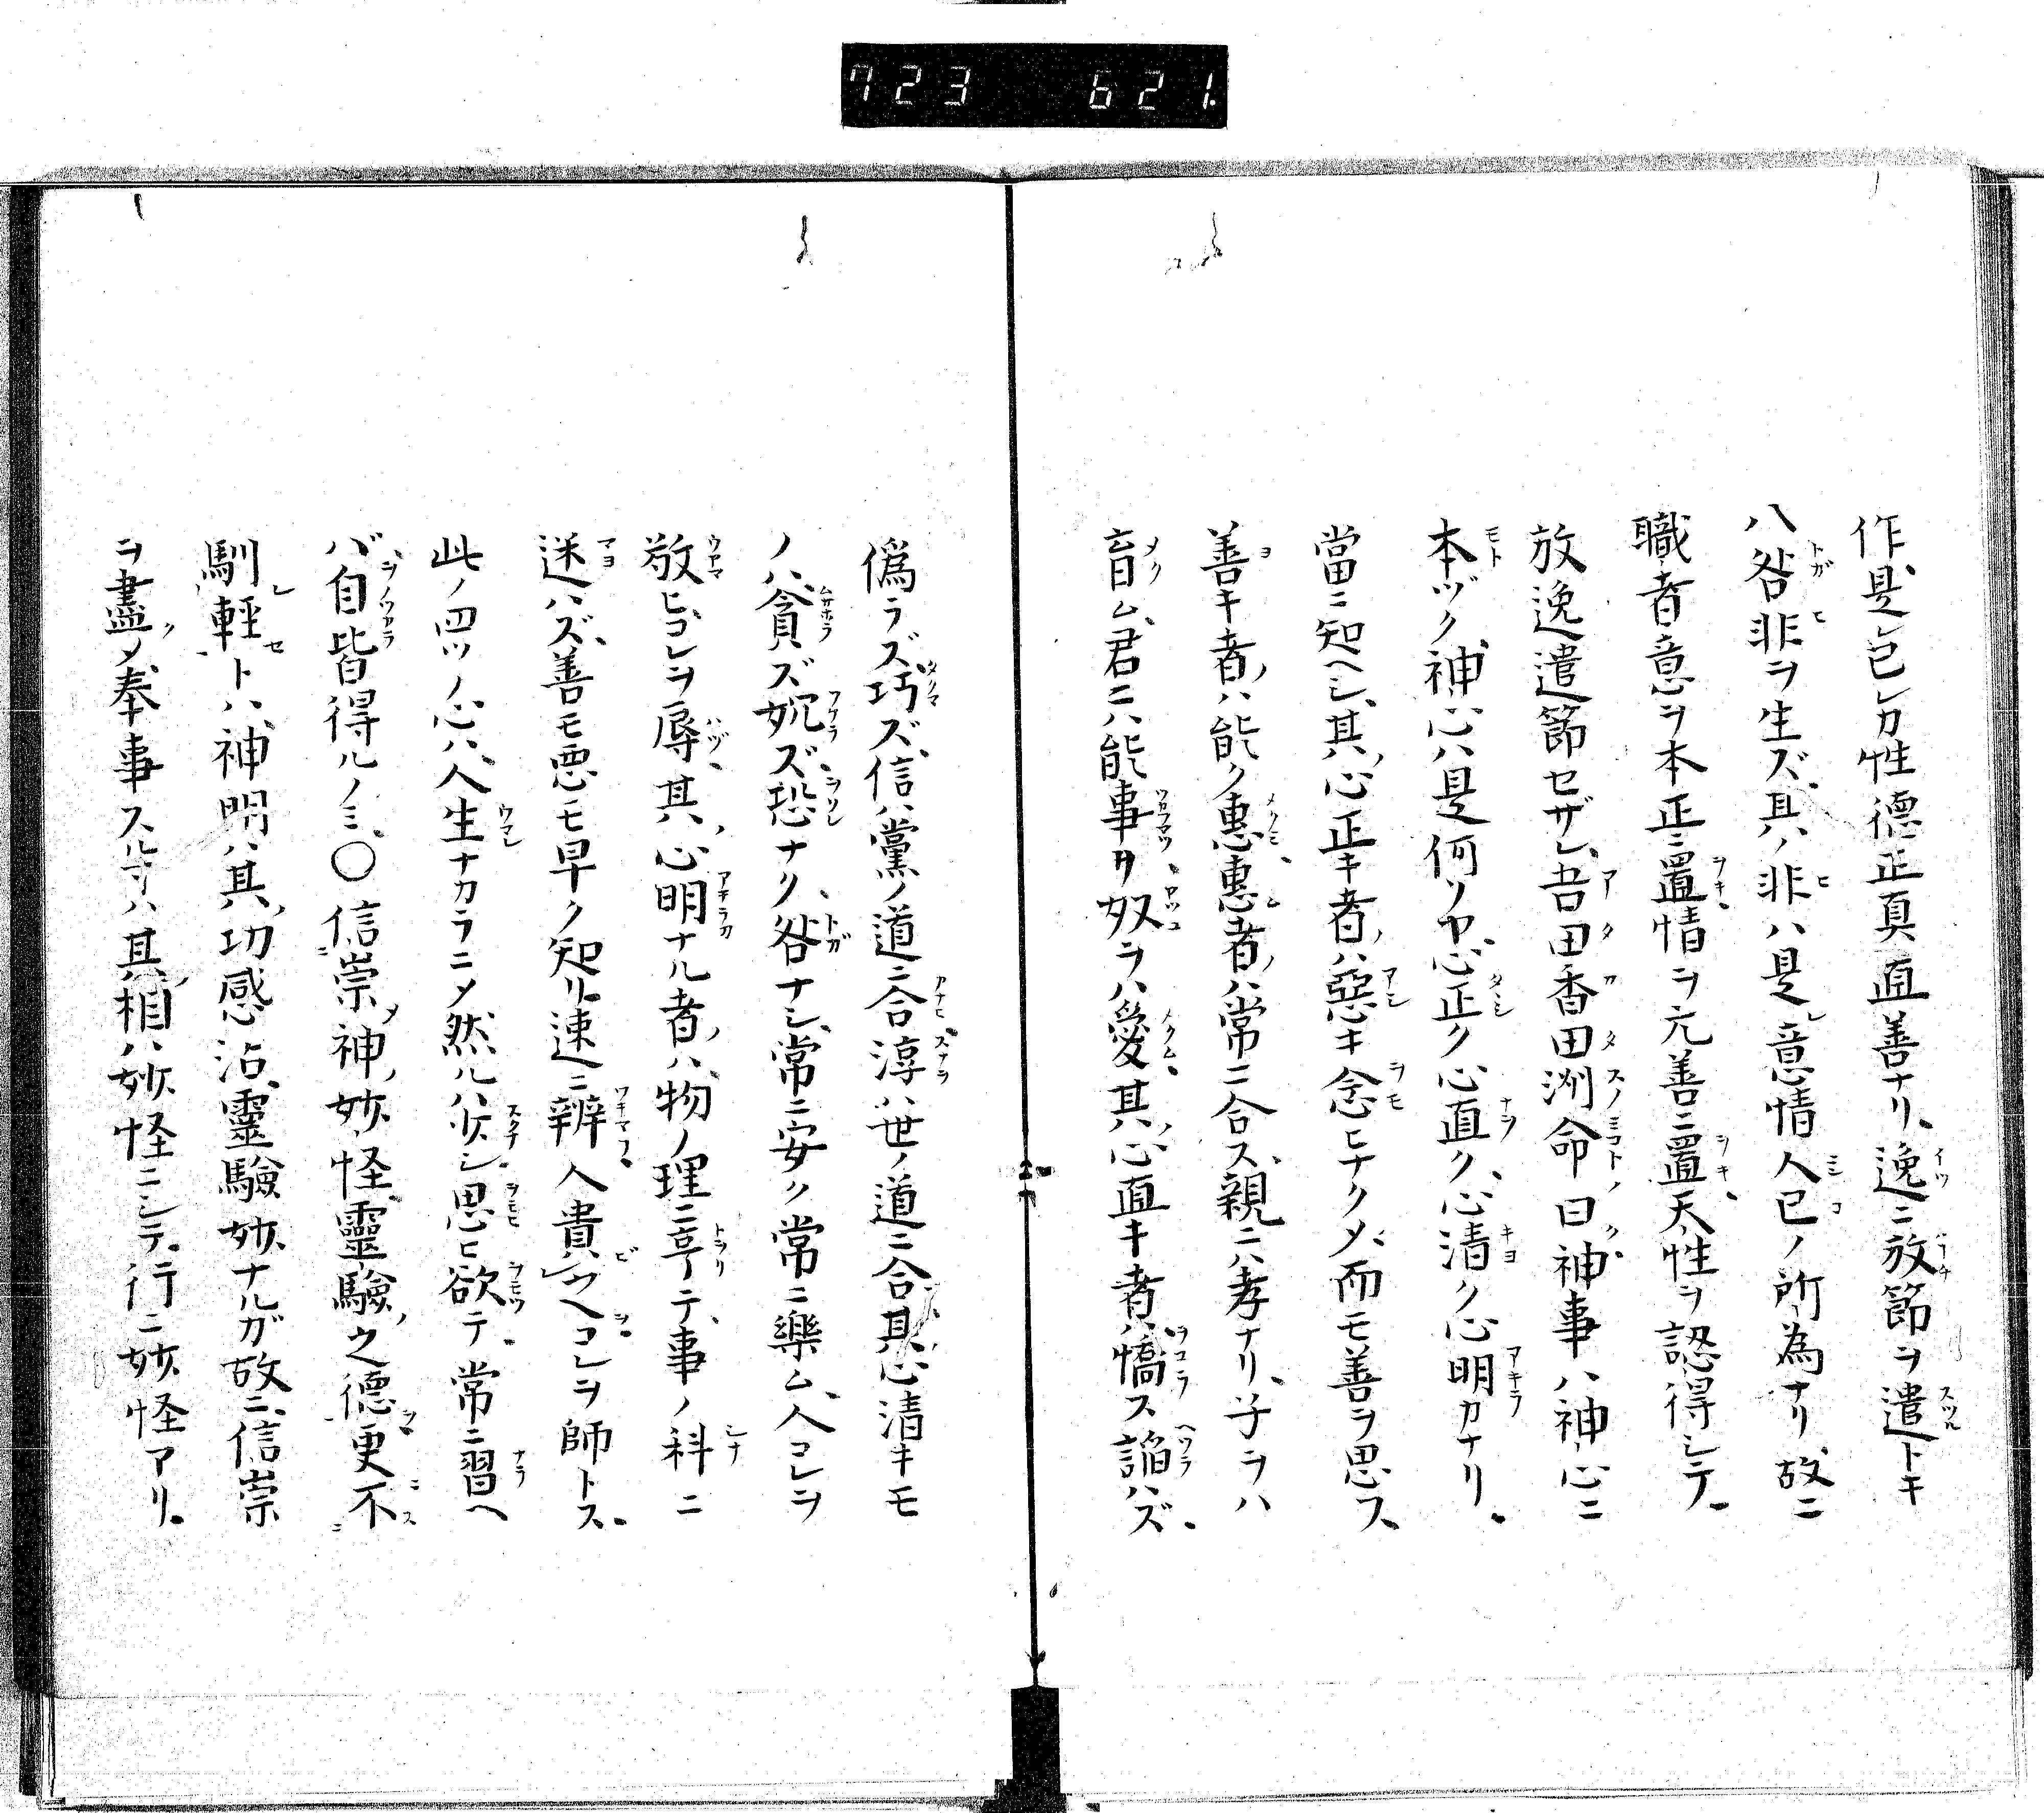 723 621.
作是レ已レカ性徳正真直善ナリ、逸ニ放節ヲ遣トキ
八咎非ヲ生ズ、其ノ非ハ是レ意情人已ノ所為ナリ故ニ
職者意ヲ本正ニ置情ヲ元善ニ置天性ヲ認得シテ、
放逸遣節セザレ、吾田香田洲命曰神事ハ神心ニ
本ヅク神心ハ是何ソヤ心正ク心直ク、心清ク心明カナリ、
當ニ知ヘシ、其心正キ者ハ惡キ念ヒナクメ、而モ善ヲ思ス、
善キ者ハ能ク惠惠者ハ常ニ合ス、親ニハ孝ナリ、子ヲハ
育ム、君ニハ能事ヲ奴ヲハ愛其心直キ者ハ憍ス諂ハズ、
偽ラズ巧ズ、信ハ黨ノ道ニ合淳ハ世ノ道ニ合其心清キモ
ノハ貪ズ婉ズ恐ナク、咎ナシ、常ニ安ク常ニ樂ム、人コレヲ
敬ヒ、コレヲ辱、其心明ナル者ハ、物ノ理ニ亨テ、事ノ科ニ
迷ハズ、善モ悪モ早ク知リ速ニ辨人貴ウヘコレヲ師トス、
此ノ四ツノ心ハ、人生ナカラニメ然ルハ少シ思ヒ欲テ、常ニ習ヘ
バ自皆得ルノミ、〇信崇神妙怪靈驗之德更不
馴輕トハ神明ハ其功感沾靈驗妙ナルガ故ニ信崇
ヲ盡メ奉事スル寸ハ其相ハ妙怪ニシテ、行ニ妙怪アリ、